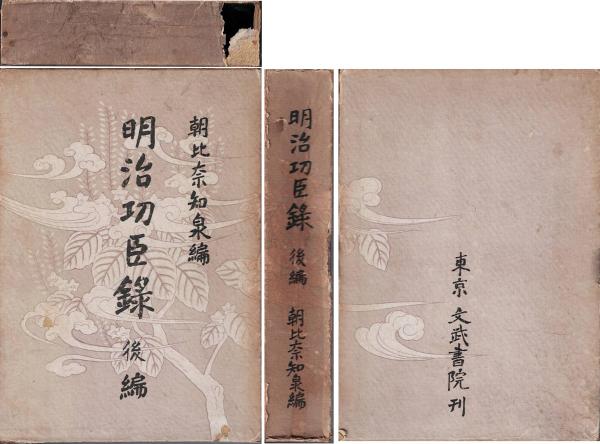 朝比奈知泉編
明治功臣錄 後編
明治功臣錄 後編 朝比奈知泉編
東京 文武書院刊